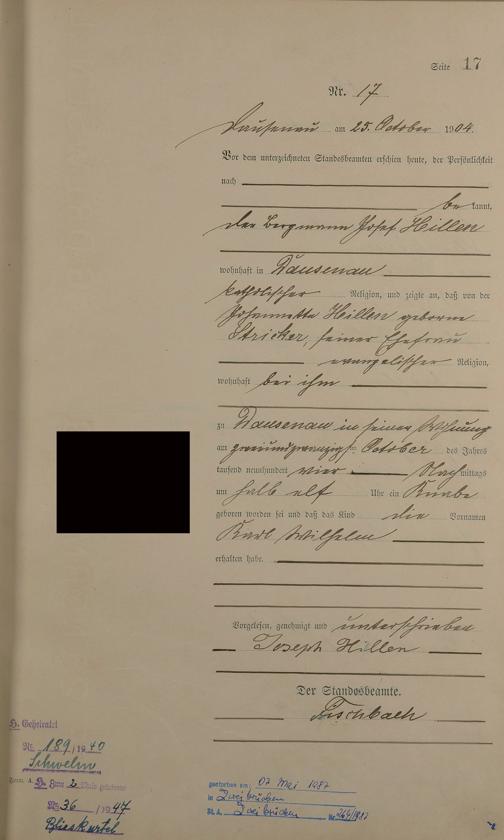 Seite 17
Nr. 17
Dausenau am 25. October 1904.
Vor dem unterzeichneten Standesbeamten erschien heute, der Persönlichkeit
nach
be kannt,
der Bergmann Josef Hillen
wohnhaft in Dausenau
katholischer Religion, und zeigte an, daß von der
Johannetta Hillen geborene
Stricker, seiner Ehefrau
evangelischer Religion,
wohnhaft bei ihm
zu Dausenau in seiner Wohnung
am zweiundzwanzigsten October des Jahres
tausend neunhundert vier Nachmittags
um halb elf Uhr ein Knabe
geboren worden sei und daß das Kind die Vornamen
Karl Wilhelm
erhalten habe.
Vorgelesen, genehmigt und unterschrieben
Joseph Hillen
Der Standesbeamte.
Fischbach
H. Geheiratet
Nr. 189/1940
Schwelm
2
Nr. 36/1947
Blieskastel
gestorben am: 07. Mai 1987
in Zweibrücken
St. A. Zweibrücken Nr. 264/1987